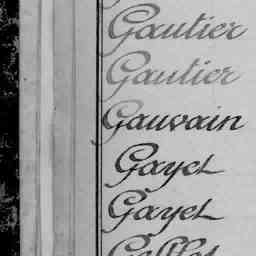 Gautier
Gautier
Gauvain
Gayet
Gayet